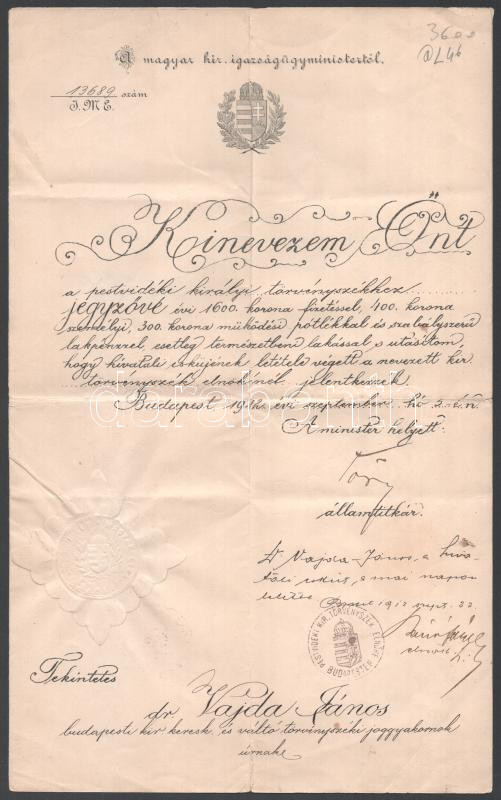 3600
A magyar kir. igazságügyministertől.
13689 szám
I. M. E.
Kinevezem Önt
a pestvidéki királyi törvényszékhez
jegyzővé évi 1600 korona fizetéssel, 400 korona
személyi, 300 korona működési pótlékkal és szabályszerű
lakpénzzel, esetleg természetbeni lakással s utasítom,
hogy hivatali esküjének letétele végett a nevezett kir.
törvényszék elnökénél jelentkezzék.
Budapest, 1912. évi szeptember hó 5-én
A minister helyett:
Töry
államtitkár.
Dr Vajda János a hiva-
tali esküt a mai napon
letette
Bpest 1912 szept. 22.
elnök
PESTVIDÉKI KIR. TÖRVÉNYSZÉK ELNÖKE BUDAPESTEN
Tekintetes
dr. Vajda János
budapesti kir. keresk. és váltó törvényszéki joggyakornok
úrnak
darabanth.com